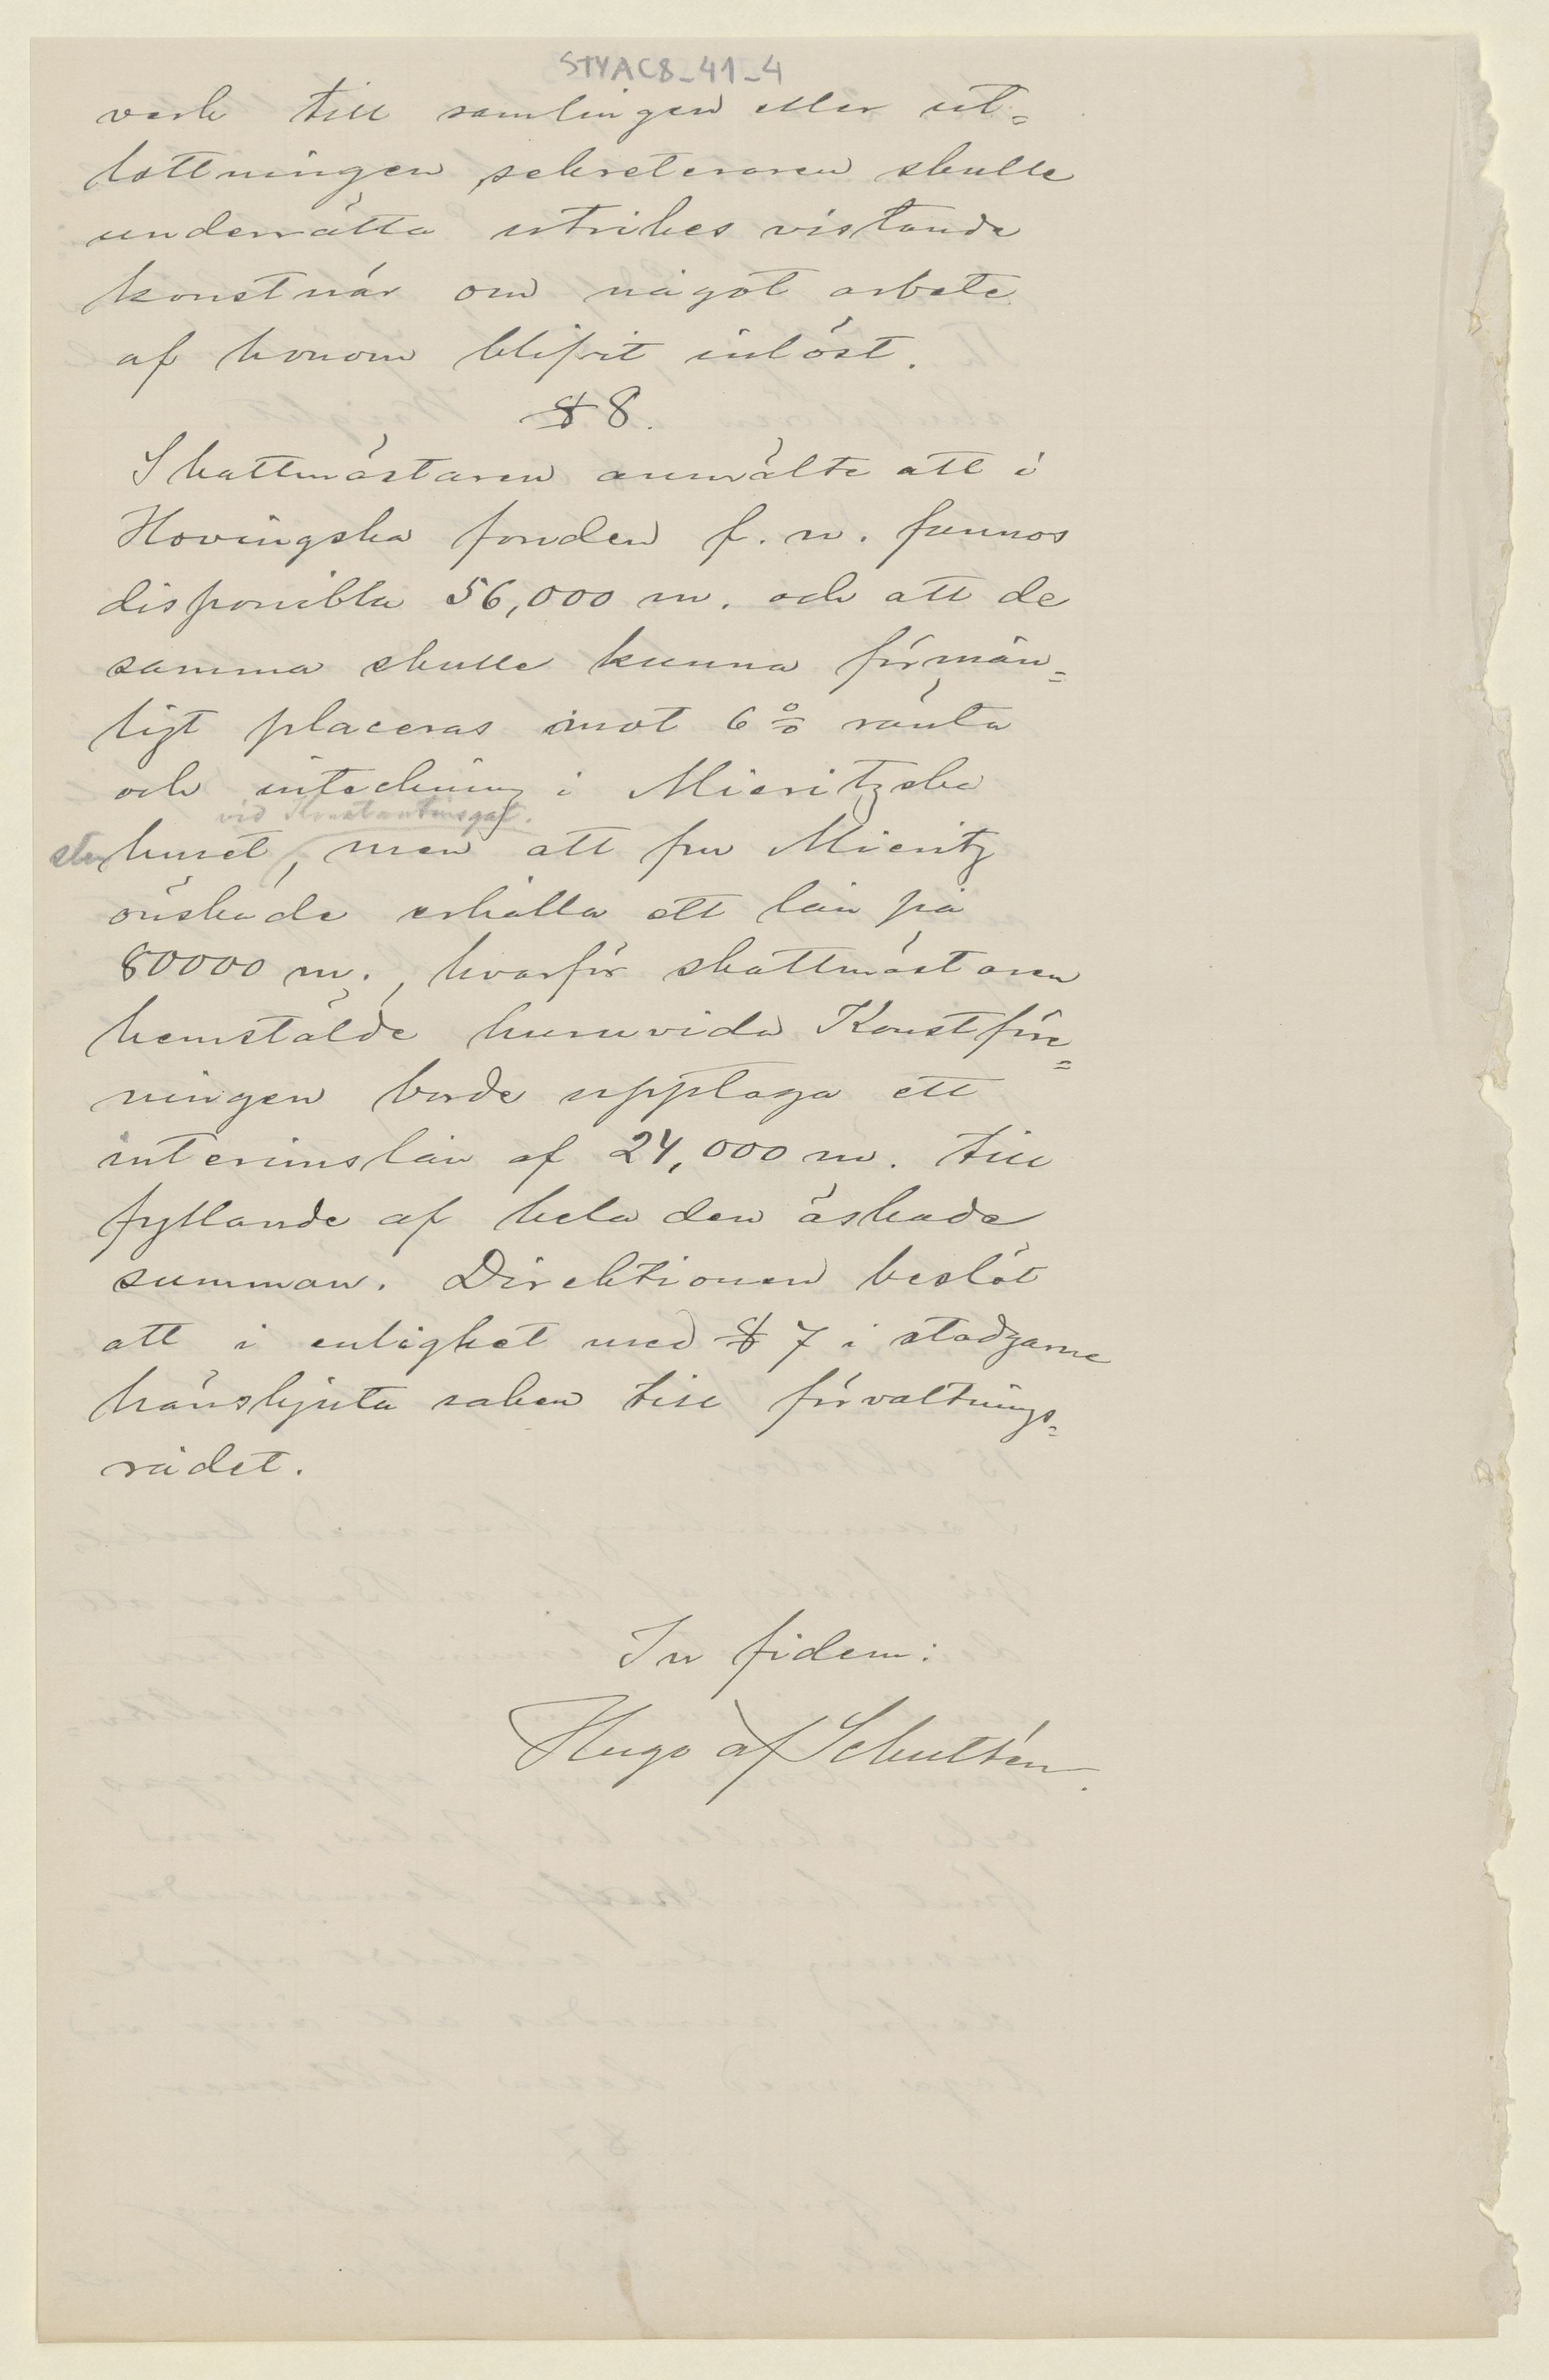 STYAC8_41_4
verk till samlingen eller ut=
lottningen, sekreteraren skulle
underrätta utrikes vistande
konstnär om något arbete
af honom blifvit inlöst.
§ 8.
Skattmästaren anmälte att i
Hovingska fonden f. n. funnos
disponibla 56,000 m. och att de
samma skulle kunna förmån=
ligt placeras imot 6 % ränta
och inteckning i Mieritzska
vid Konstantinsgat.
stenhuset, men att fru Mieritz
önskade erhålla ett lån på
80000 m., hvarför skattmästaren
hemstälde huruvida Konstföre=
ningen borde upptaga ett
interimslån af 24,000 m. till
fyllande af hela den äskade
summan. Direktionen beslöt
att i enlighet med § 7 i stadgarne
hänskjuta saken till förvaltnings=
rådet.
In fidem:
Hugo af Schultén.